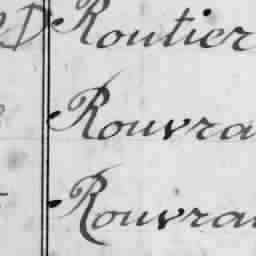 D Routier
Rouvra
Rouvra